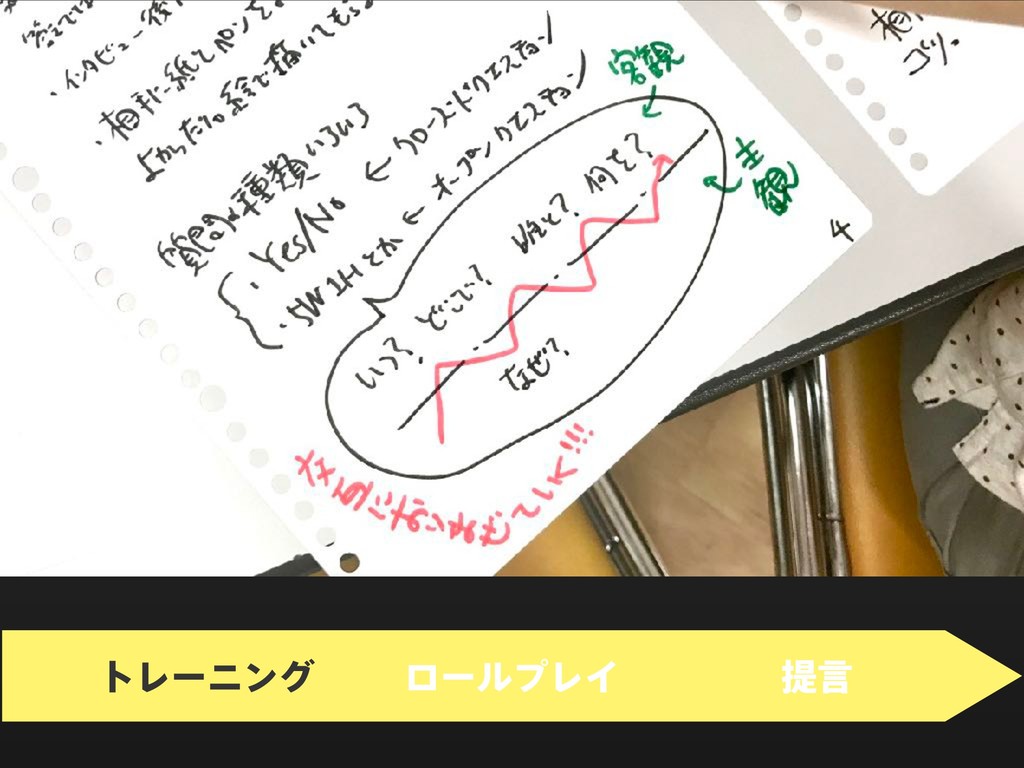 ・インタビュー後
・相手に紙とペンを
よかったら絵で描いてもら
質問の種類いろいろ
・Yes/No ← クローズドクエスチョン
・5W1Hとか ← オープンクエスチョン
いつ? どこで? 誰と? 何を?
なぜ?
客観
主観
交互におりまぜていく!!!
4
コツ。
トレーニング ロールプレイ 提言